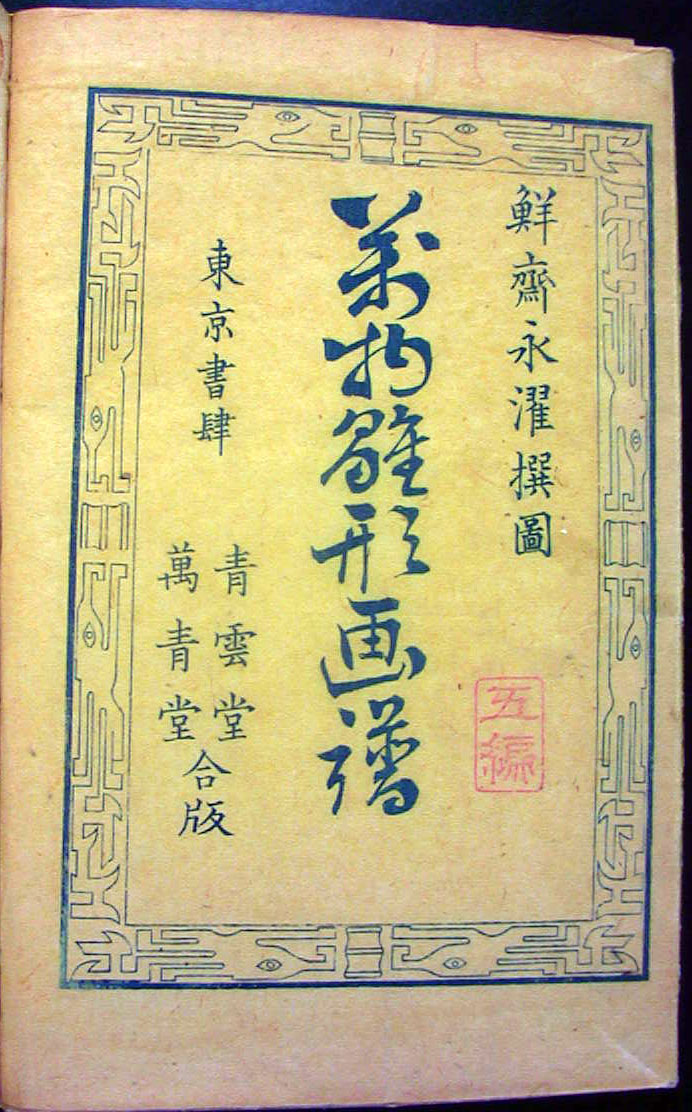 鮮齋永濯撰圖
五編
萬物雛形画譜
東京書肆
青雲堂
萬青堂
合版